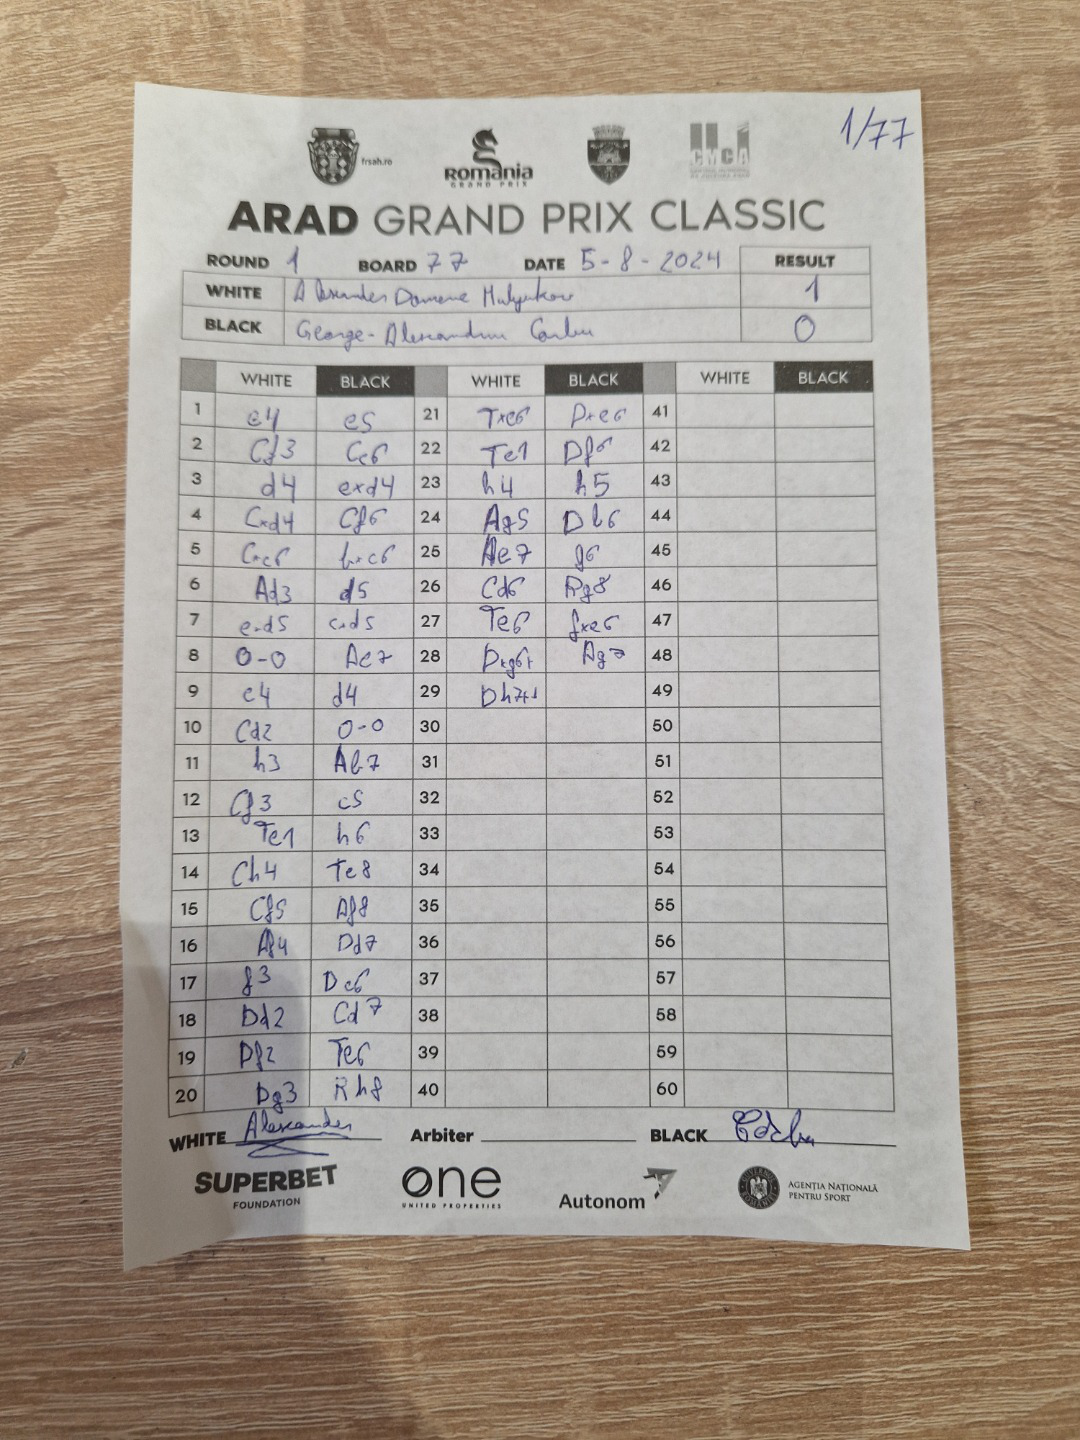 1/77
frsah.ro
ROMANIA
GRAND PRIX
CMCA
ARAD GRAND PRIX CLASSIC
ROUND 1 BOARD 77 DATE 5-8-2024 RESULT
WHITE Alexander Domene 1
BLACK George-Alexandru 0
WHITE BLACK WHITE BLACK WHITE BLACK
1 e4 e5 21 Txe6 Dxe6 41
2 Cf3 Cc6 22 Te1 Df6 42
3 d4 exd4 23 h4 h5 43
4 Cxd4 Cf6 24 Ag5 Db6 44
5 Cxc6 bxc6 25 Ae7 g6 45
6 Ad3 d5 26 Cd6 Rg8 46
7 exd5 cxd5 27 Te6 fxe6 47
8 0-0 Ae7 28 Dxg6+ Ag7 48
9 c4 d4 29 Dh7++ 49
10 Cd2 0-0 30 50
11 h3 Ab7 31 51
12 Cf3 c5 32 52
13 Te1 h6 33 53
14 Ch4 Te8 34 54
15 Cf5 Af8 35 55
16 Af4 Dd7 36 56
17 f3 Dc6 37 57
18 Dd2 Cd7 38 58
19 Df2 Te6 39 59
20 Dg3 Rh8 40 60
WHITE Alexander Arbiter BLACK
SUPERBET
FOUNDATION
one
UNITED PROPERTIES
Autonom
AGENȚIA NAȚIONALĂ
PENTRU SPORT